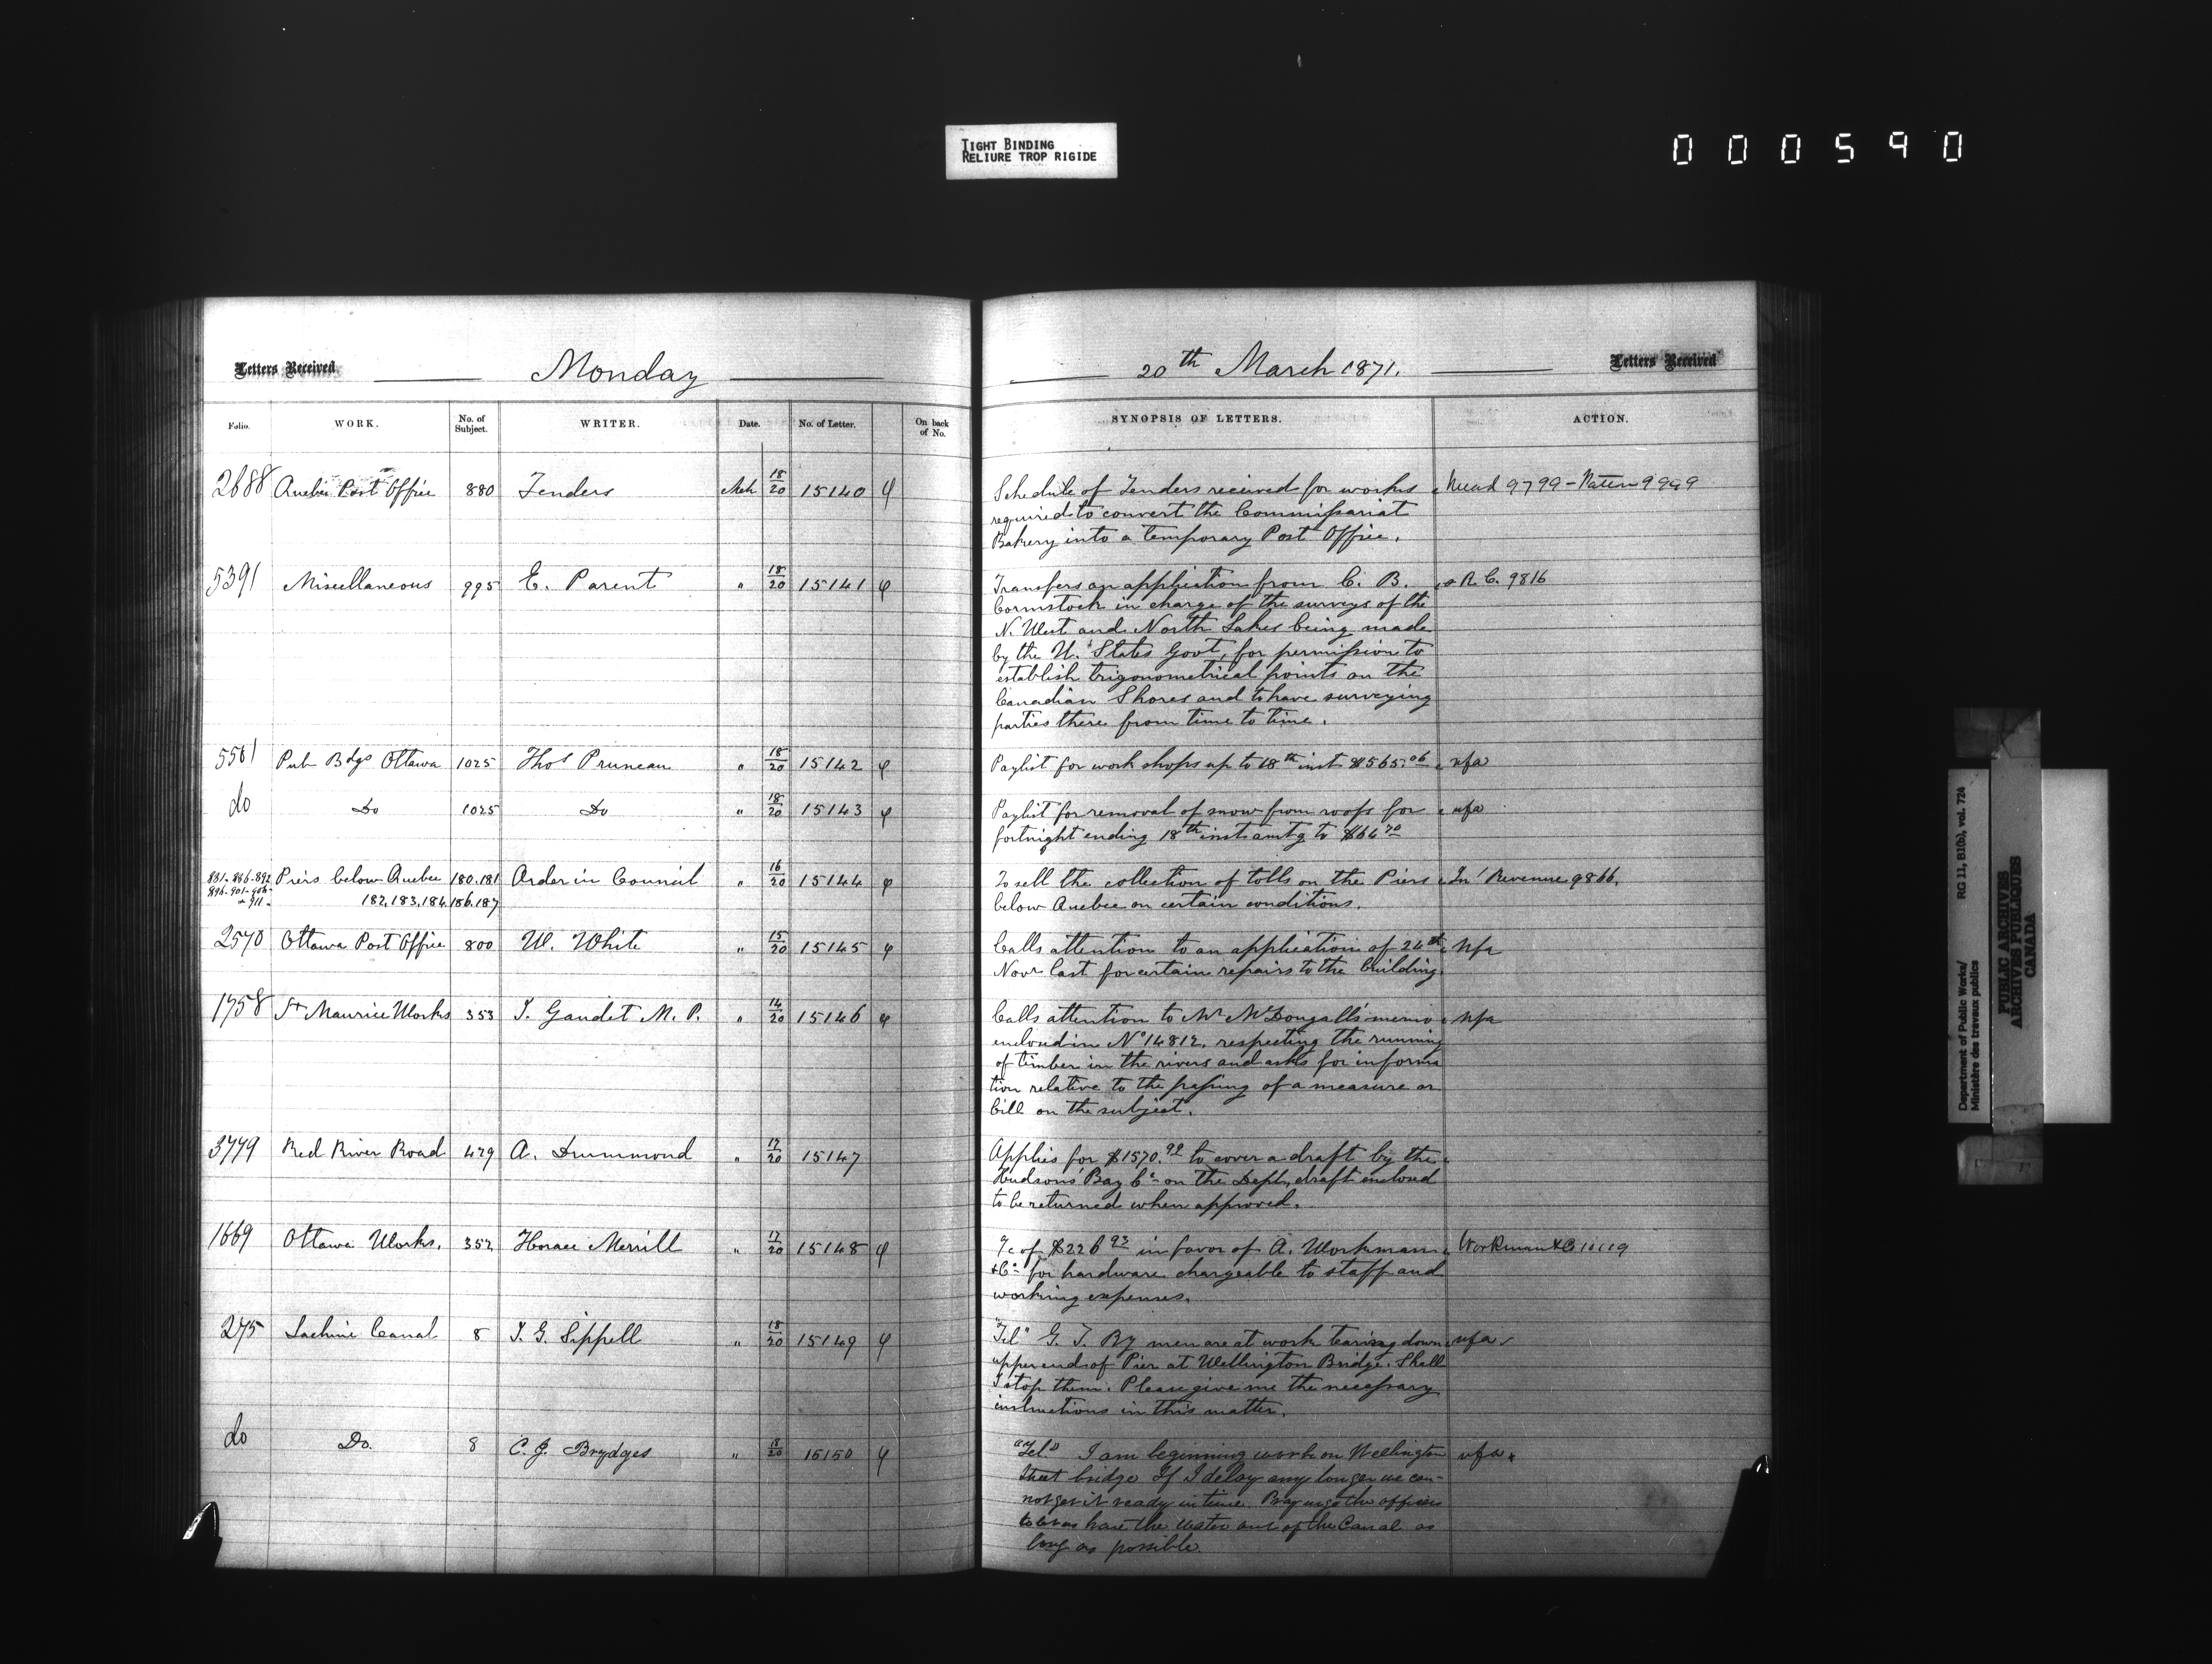 TIGHT BINDING
RELIURE TROP RIGIDE
000590
Letters Received
Monday
20th March 1871.
Letters Received
Folio.
WORK.
No. of Subject.
WRITER.
Date.
No. of Letter.
On back of No.
SYNOPSIS OF LETTERS.
ACTION.
2688 Quebec Post Office 880 Tenders Mch 18/20 15140 Schedule of Tenders received for works 9799 - 9999
required to convert the Commissariat
Bakery into a temporary Post Office.
5391 Miscellaneous 995 E. Parent " 18/20 15141 Transfers an application from C. B. R. C. 9816
Cormstock in charge of the surveys of the
N. West and North Lakes being made
by the U. States Govt, for permission to
establish trigonometrical points on the
Canadian Shores and to have surveying
parties there from time to time.
5561 Pub Bdgs Ottawa 1025 Thos Pruneau " 18/20 15142 Paylist for work shops up to 18th inst $565.06 nfa
do Do 1025 Do " 18/20 15143 Paylist for removal of snow from roofs for nfa
fortnight ending 18th inst amtg to $64.70
881-886-892 Piers below Quebec 180.181 Order in Council " 16/20 15144 To sell the collection of tolls on the Piers Inl Revenue 9866.
896-901-906- 182,183,184,186,187 below Quebec on certain conditions.
& 911-
2570 Ottawa Post Office 800 W. White " 15/20 15145 Calls attention to an application of 24th nfa
Novr last for certain repairs to the building.
1758 St Maurice Works 353 J. Gaudet M. P. " 14/20 15146 Calls attention to Mr McDougall's memo nfa
enclosed in No 14812, respecting the running
of timber in the rivers and asks for informa
tion relative to the passing of a measure or
bill on the subject.
3779 Red River Road 479 A. Drummond " 17/20 15147 Applies for $1570.99 to cover a draft by the
Hudson's Bay Co on the Dept, draft enclosed
to be returned when approved.
1669 Ottawa Works. 352 Horace Merrill " 17/20 15148 a/c of $226.93 in favor of A. Workman Workman & Co
& Co for hardware chargeable to staff and
working expenses.
275 Lachine Canal 8 J. G. Sippell " 18/20 15149 "Tel" G. T. Ry men are at work tearing down nfa
upper end of Pier at Wellington Bridge. Shall
I stop them. Please give me the necessary
instructions in this matter.
do Do. 8 C. J. Brydges " 18/20 15150 "Tel" I am beginning work on Wellington nfa
Street bridge If I delay any longer we can-
not get it ready in time. Pray urge the officers
to let us have the water out of the Canal as
long as possible.
Department of Public Works/ RG 11, B1(b), vol. 724
Ministère des travaux publics
PUBLIC ARCHIVES
ARCHIVES PUBLIQUES
CANADA